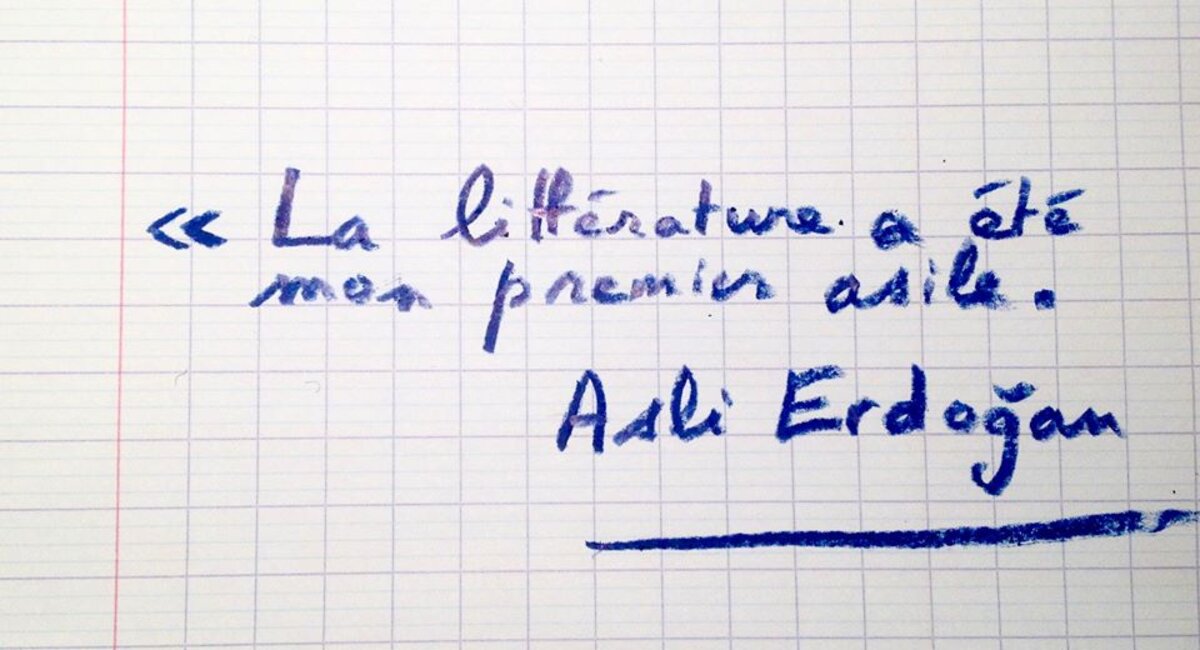 « La littérature a été
mon premier asile.
Asli Erdoğan